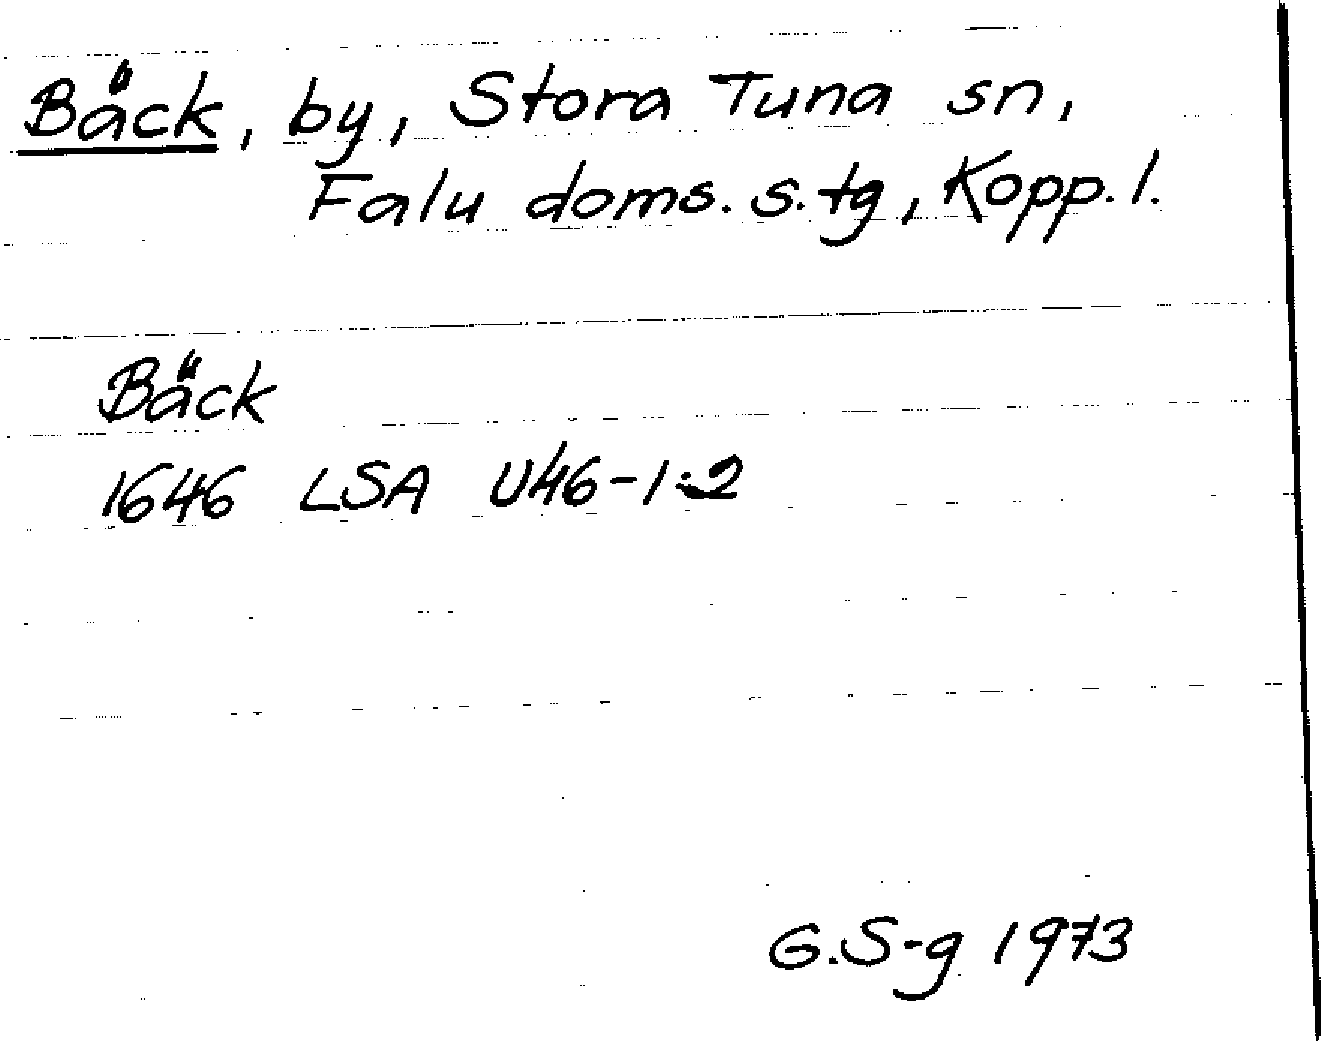 Bäck, by, Stora Tuna sn,
Falu doms. s. tg, Kopp. l.
Bäck
1646 LSA U46-1:2
G.S-g 1973